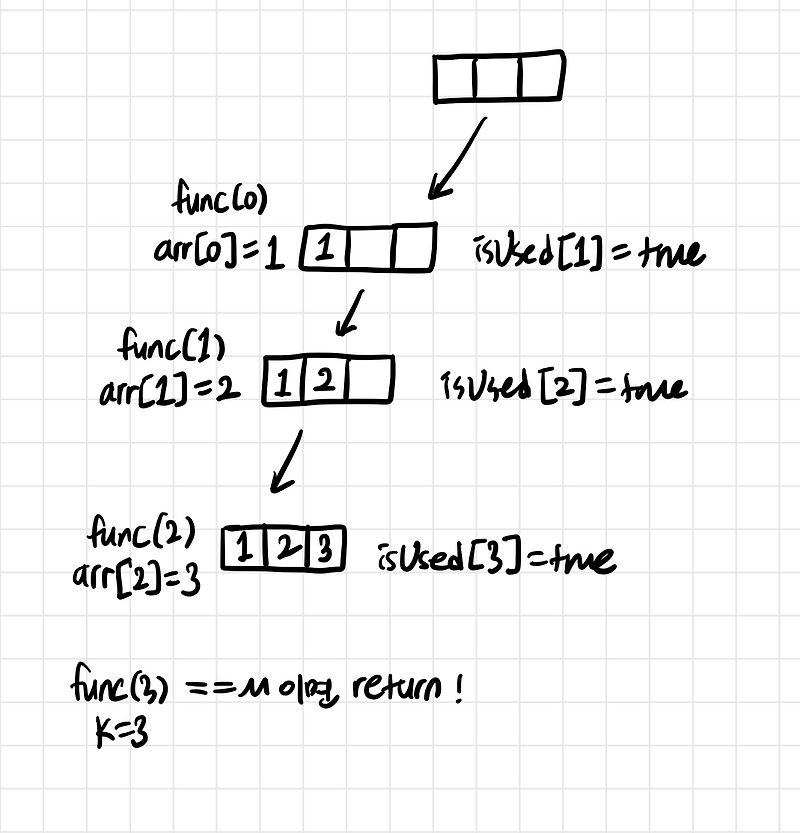 func(0)
arr[0]=1 1 isUsed[1]=true
func(1)
arr[1]=2 1 2 isUsed[2]=true
func(2)
arr[2]=3 1 2 3 isUsed[3]=true
func(3) ==M 이면, return!
K=3